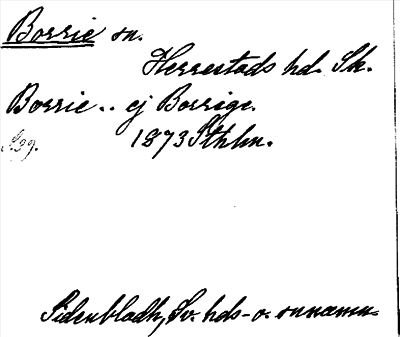 Borrie sn.
Herrestads hd. Sk.
Borrie.. ej Borrige.
1873 Sthlm.
s. 99.
Sidenbladh, Sv. hds- o. snnamn.